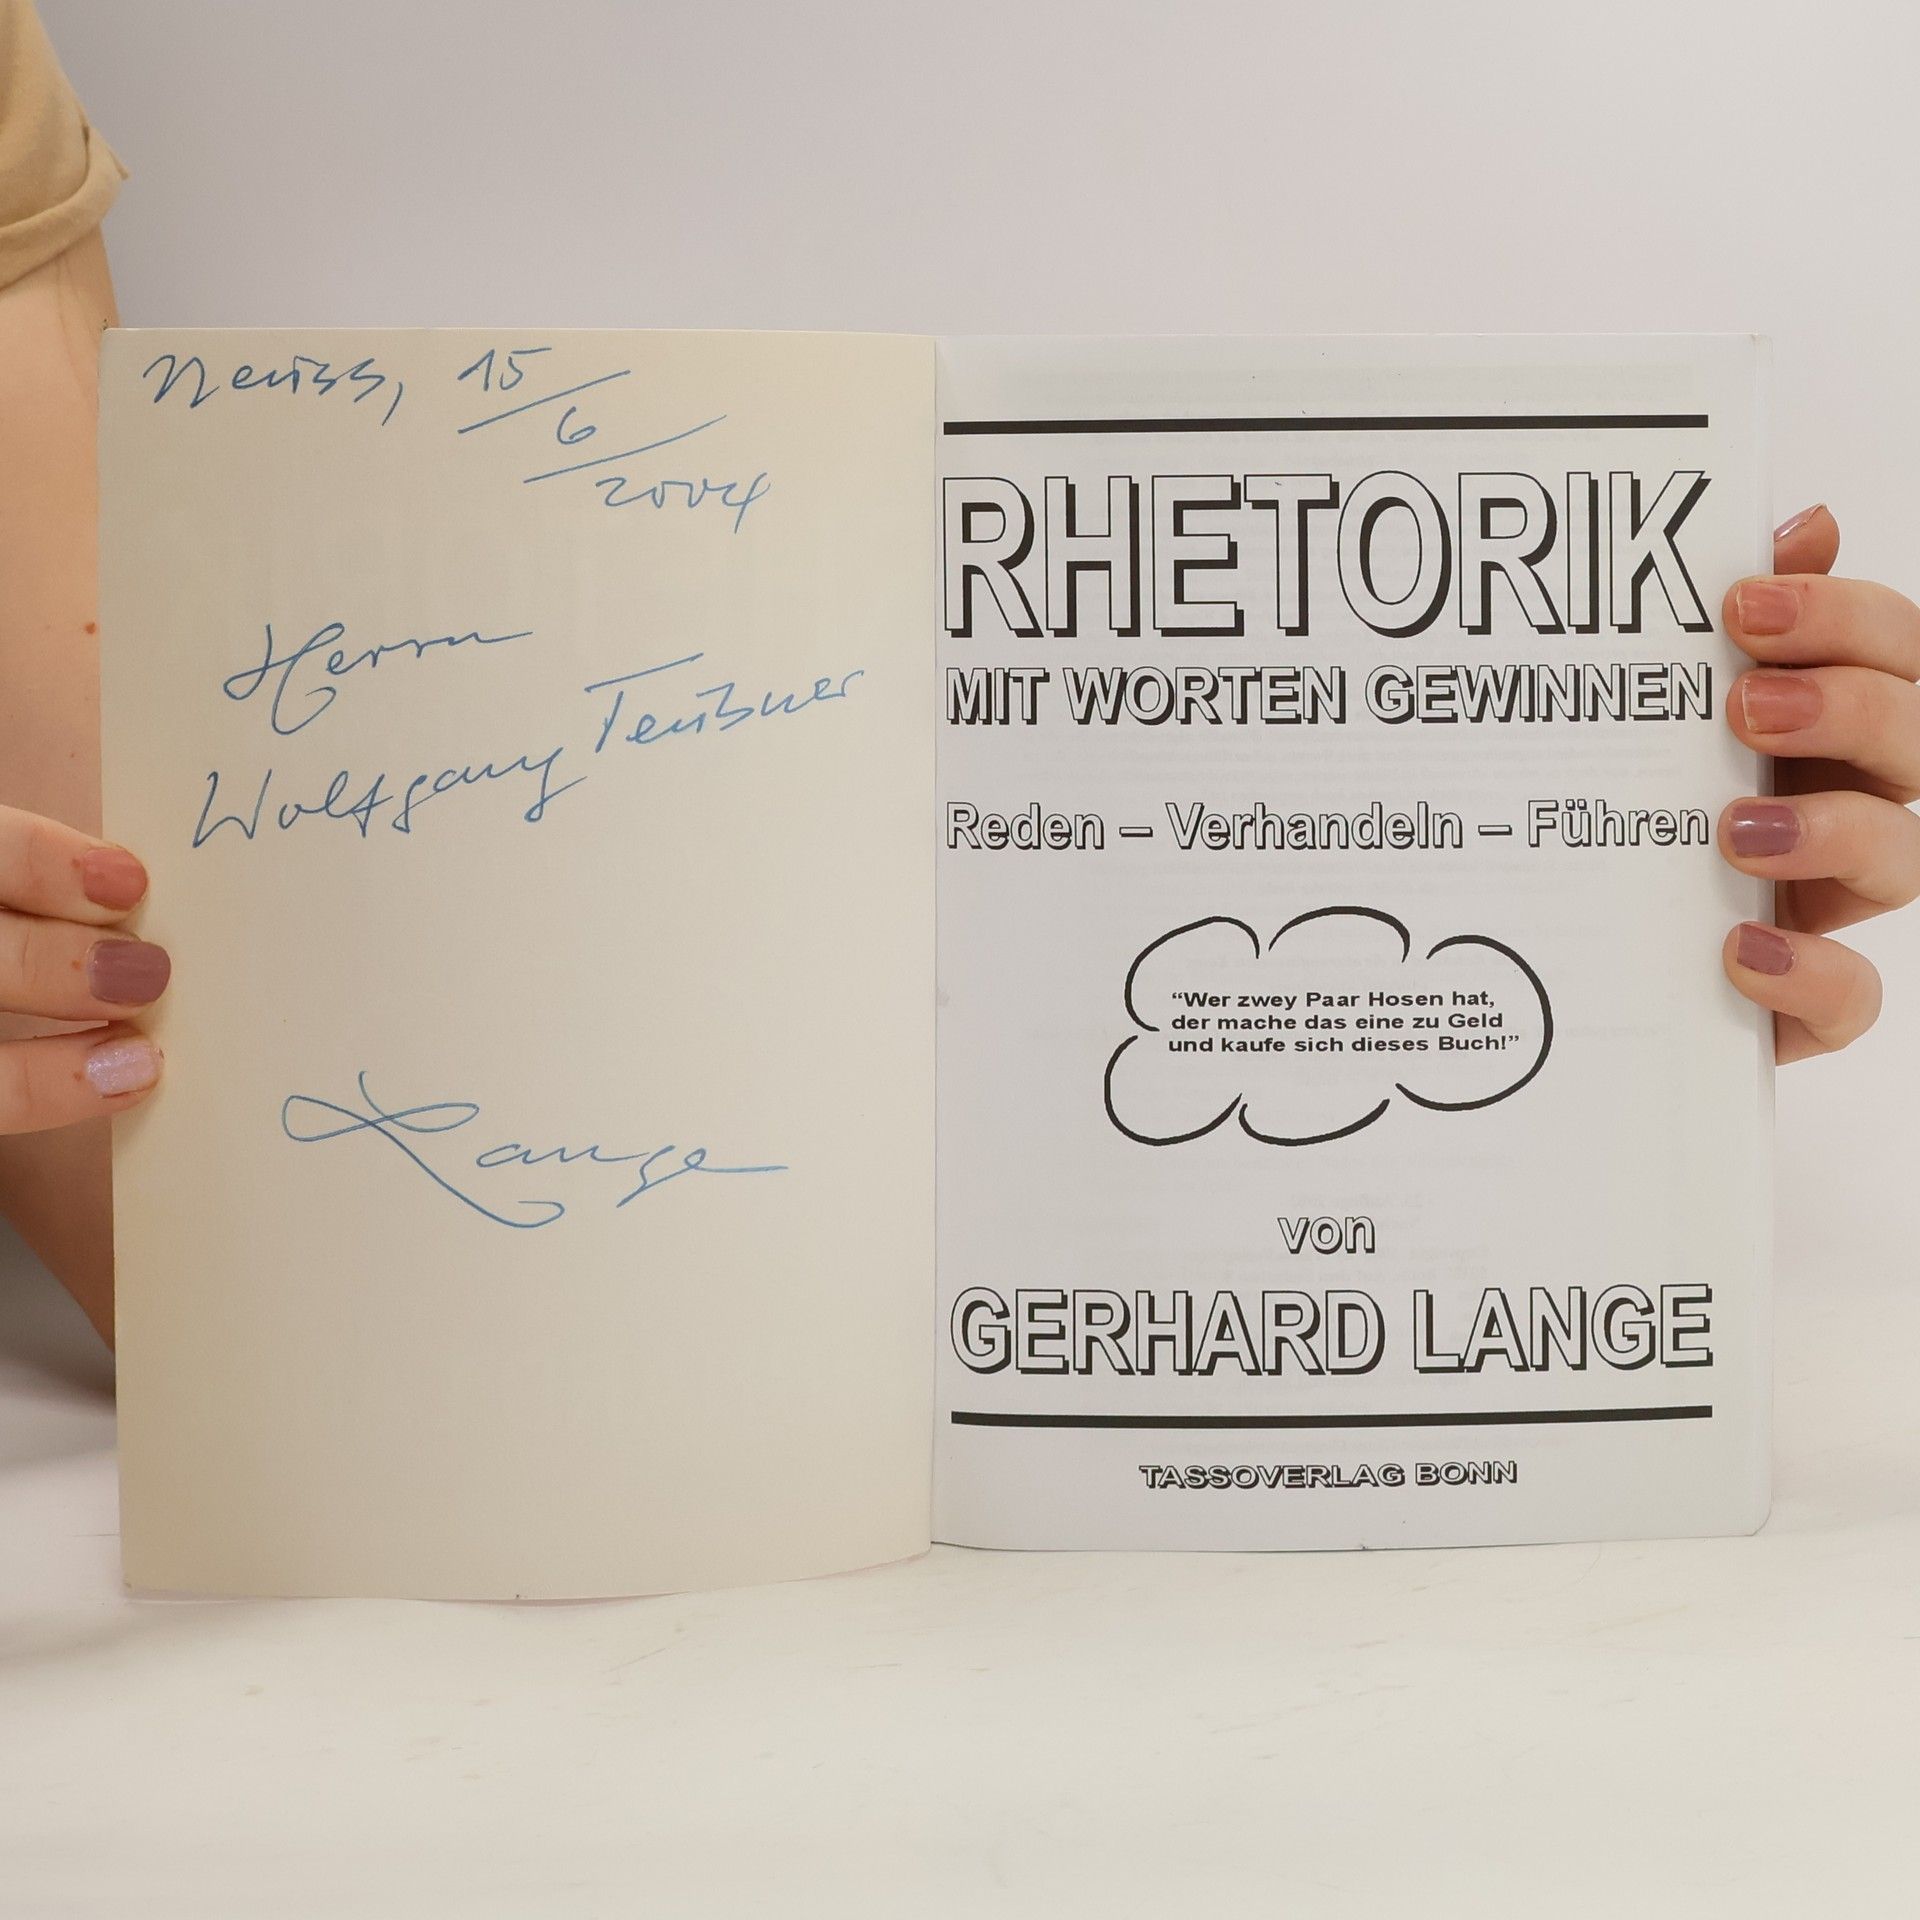 Neuss, 15/
6/
2004
Herrn
Wolfgang Teubner
Lange
RHETORIK
MIT WORTEN GEWINNEN
Reden – Verhandeln – Führen
“Wer zwey Paar Hosen hat,
der mache das eine zu Geld
und kaufe sich dieses Buch!”
von
GERHARD LANGE
TASSOVERLAG BONN